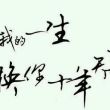 我的一生
换你十年